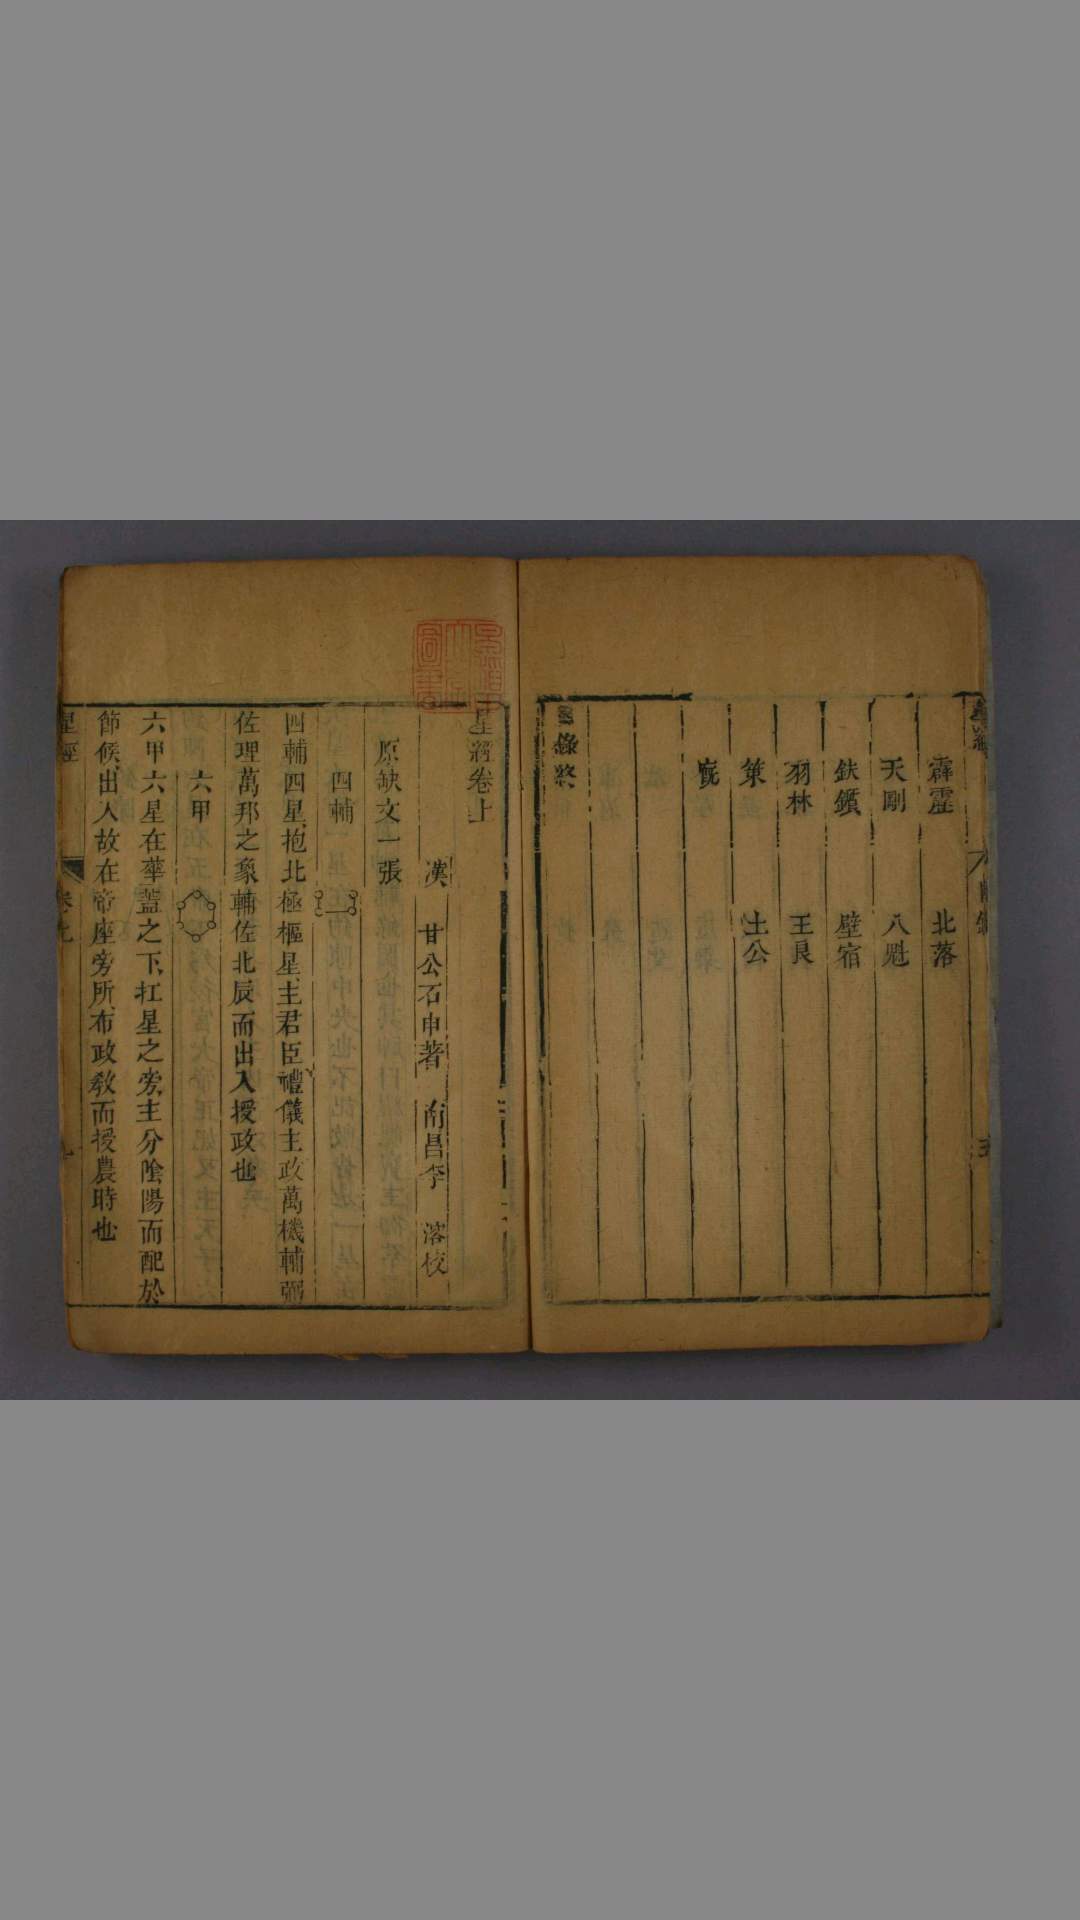 霹靂 北落
天剛 八魁
鈇鑕 壁宿
羽林 王良
策 土公
廐
目錄終
星經卷上
漢 甘公石申著 南昌李 濬校
原缺文一張
四輔
四輔四星抱北極樞星主君臣禮儀主政萬機輔弼
佐理萬邦之象輔佐北辰而出入授政也
六甲
六甲六星在華蓋之下扛星之旁主分陰陽而配於
節候出入故在帝座旁所布政敎而授農時也
星經 卷九